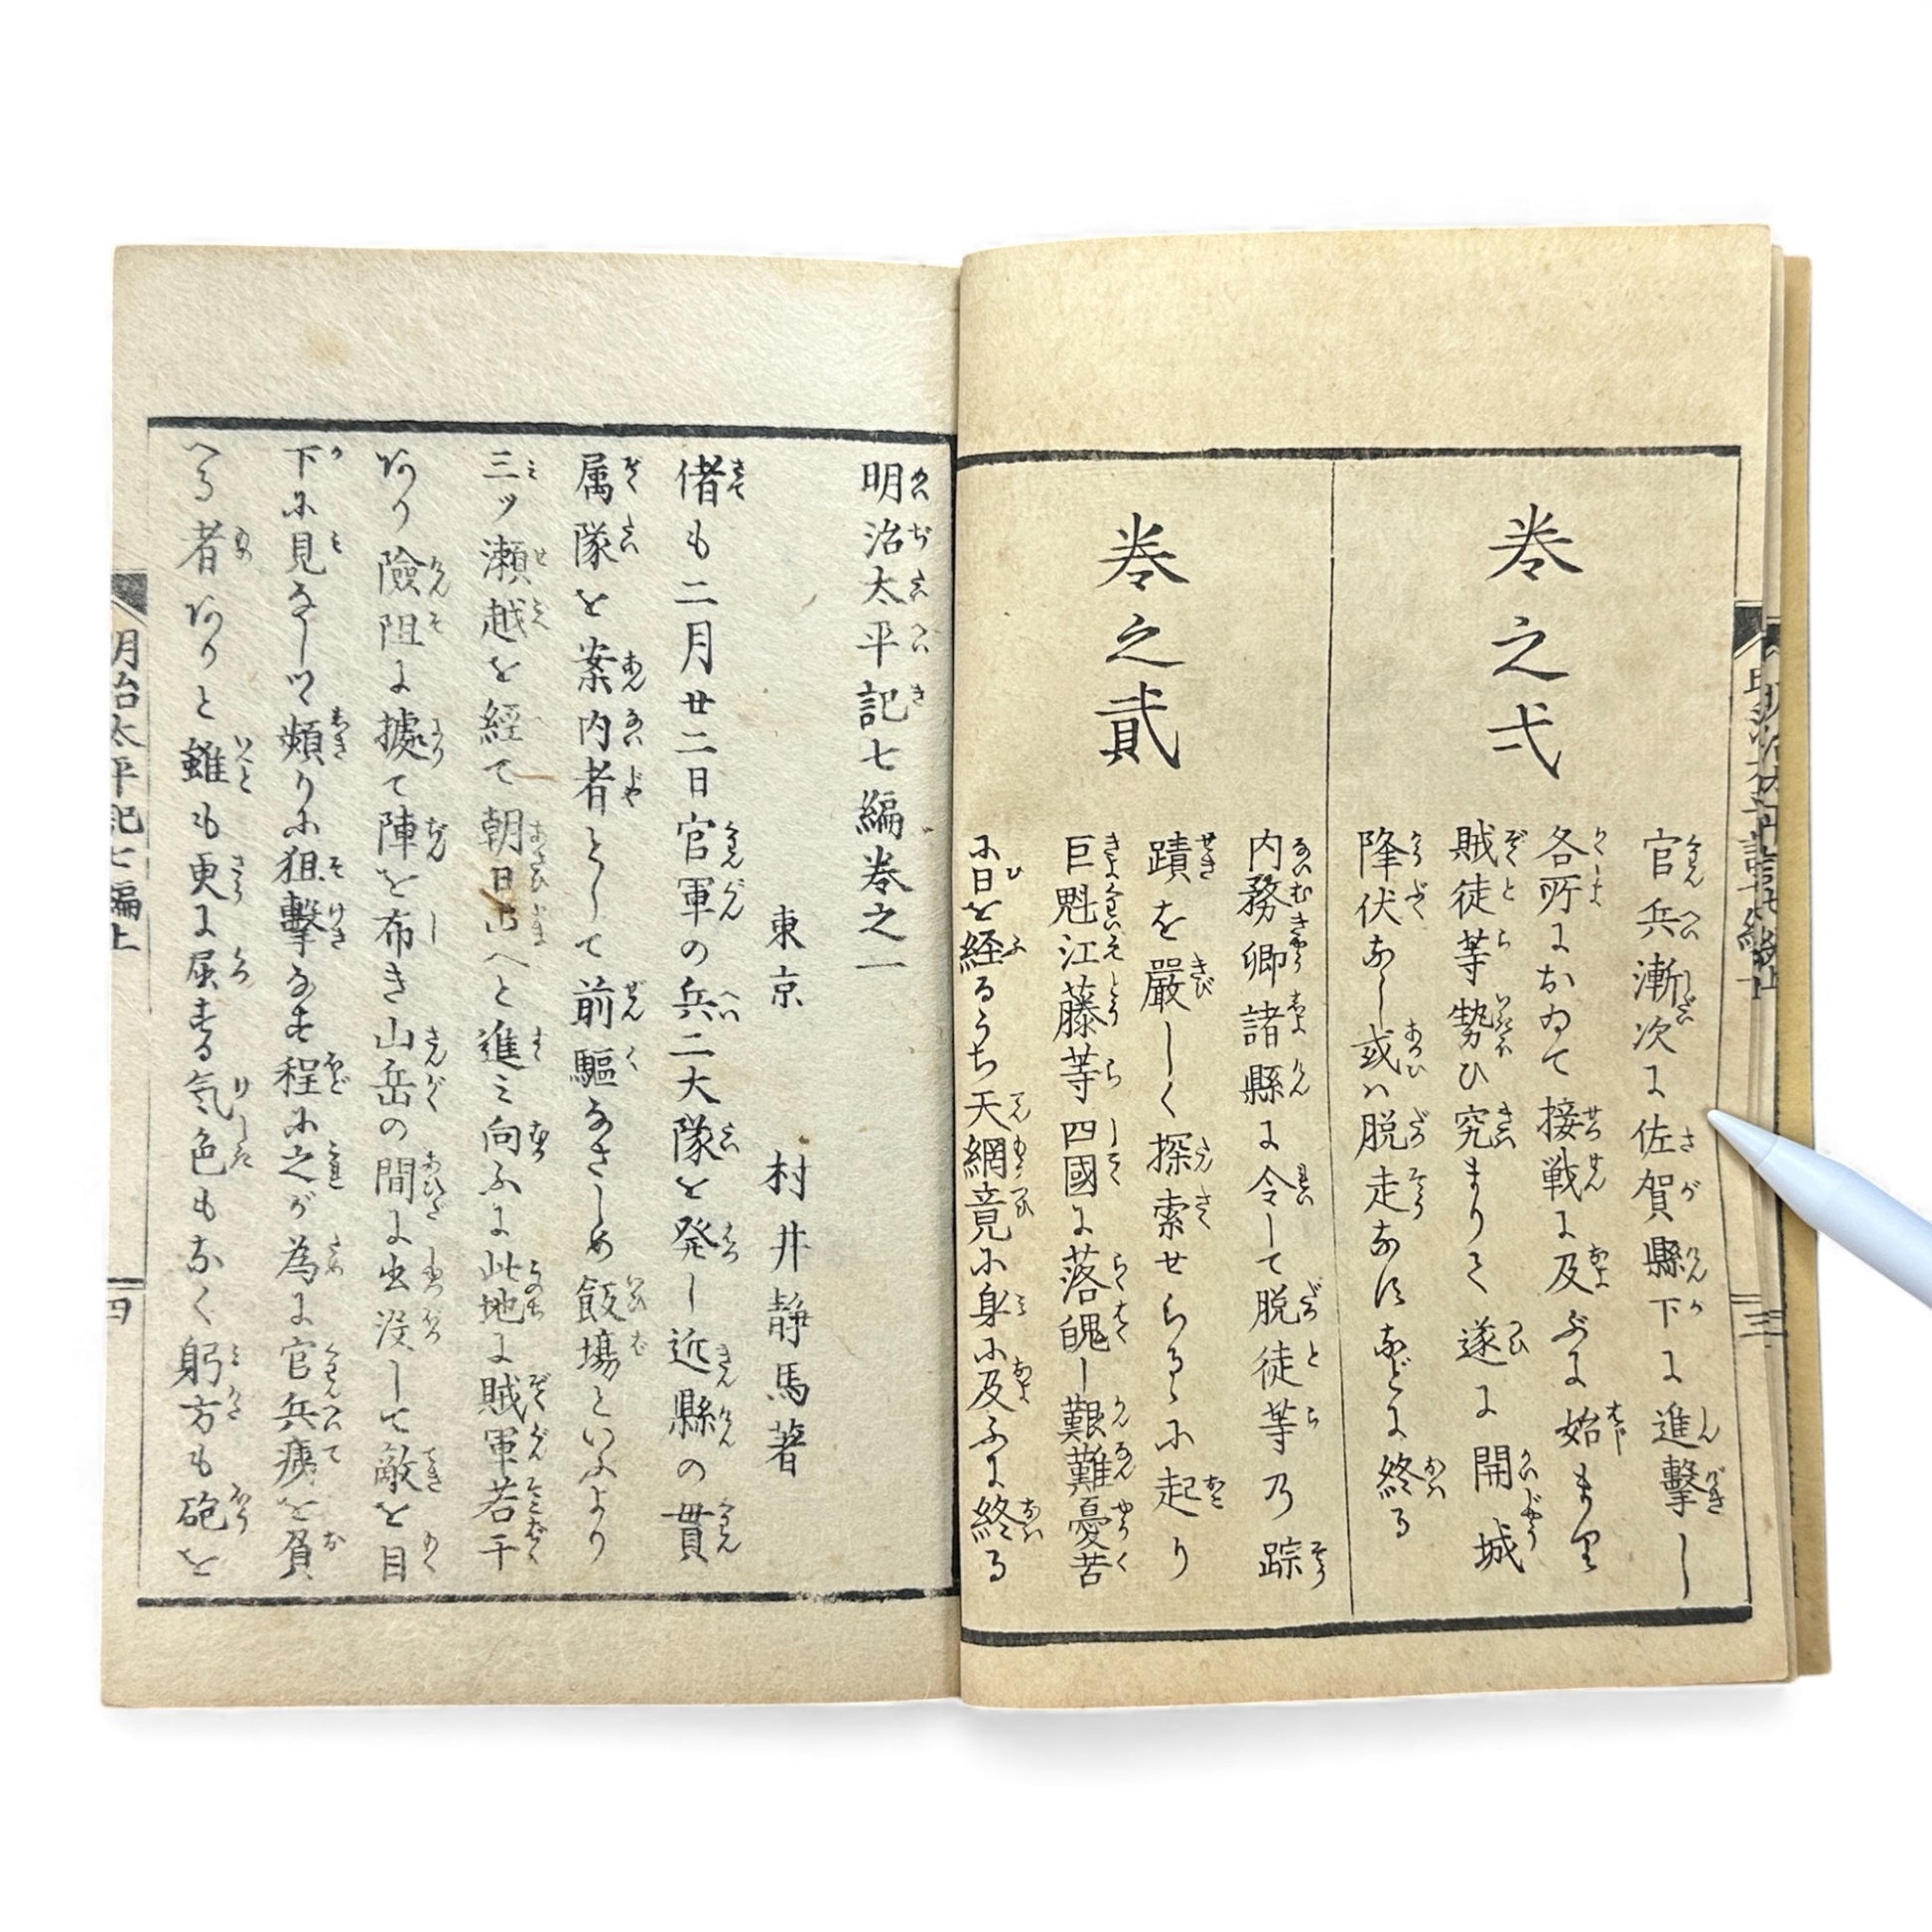 巻之弌
官兵漸次に佐賀縣下に進擊し
各所におゐて接戦に及ぶに始まり
賊徒等勢ひ究まりて遂に開城
降伏なし或ハ脱走なすなどに終る
巻之貳
内務卿諸縣に令して脱徒等乃踪
蹟を嚴しく探索せらるゝに起り
巨魁江藤等四國に落魄し艱難憂苦
に日を経るうち天網竟に身に及ふに終る
明治太平記七編巻之一
東京 村井静馬著
偖も二月廿二日官軍の兵二大隊を発し近縣の貫
属隊を案内者として前驅なさしめ飯塲といふより
三ツ瀬越を経て朝日山へと進ミ向ふに此地に賊軍若干
あり險阻に據て陣を布き山岳の間に出没して敵を目
下に見なして頻りに狙擊なせ程に之が為に官兵痍を負
へる者ありと雖も更に屈する気色もなく躬方も砲を
明治太平記七編上
四
三